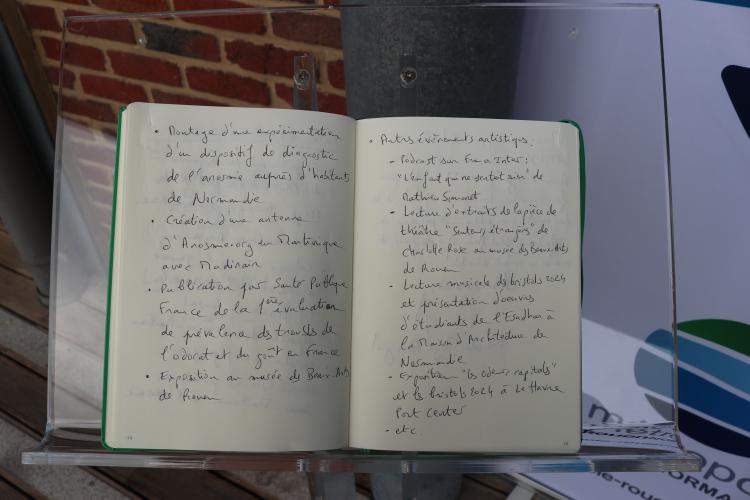 • Montage d'une expérimentation
d'un dispositif de diagnostic
de l'anosmie auprès d'habitants
de Normandie
• Création d'une antenne
d'Anosmie.org en Martinique
avec Madinair
• Publication par Santé Publique
France de la 1ère évaluation
de prévalence des troubles de
l'odorat et du goût en France
• Exposition au musée des Beaux-Arts
de Rouen
• Autres évènements artistiques :
- Podcast sur France Inter :
"L'enfant qui ne sentait rien" de
Mathieu Simonet
- Lecture d'extraits de la pièce de
théâtre "Senteurs étrangères" de
Charlotte Rose au musée des Beaux-Arts
de Rouen
- Lecture musicale des bristols 2024
et présentation d'oeuvres
d'étudiants de l'Esadhar à
la Maison d'Architecture de
Normandie
- Exposition "les odeurs capitales"
et les bristols 2024 à Le Havre
Port Center
- etc